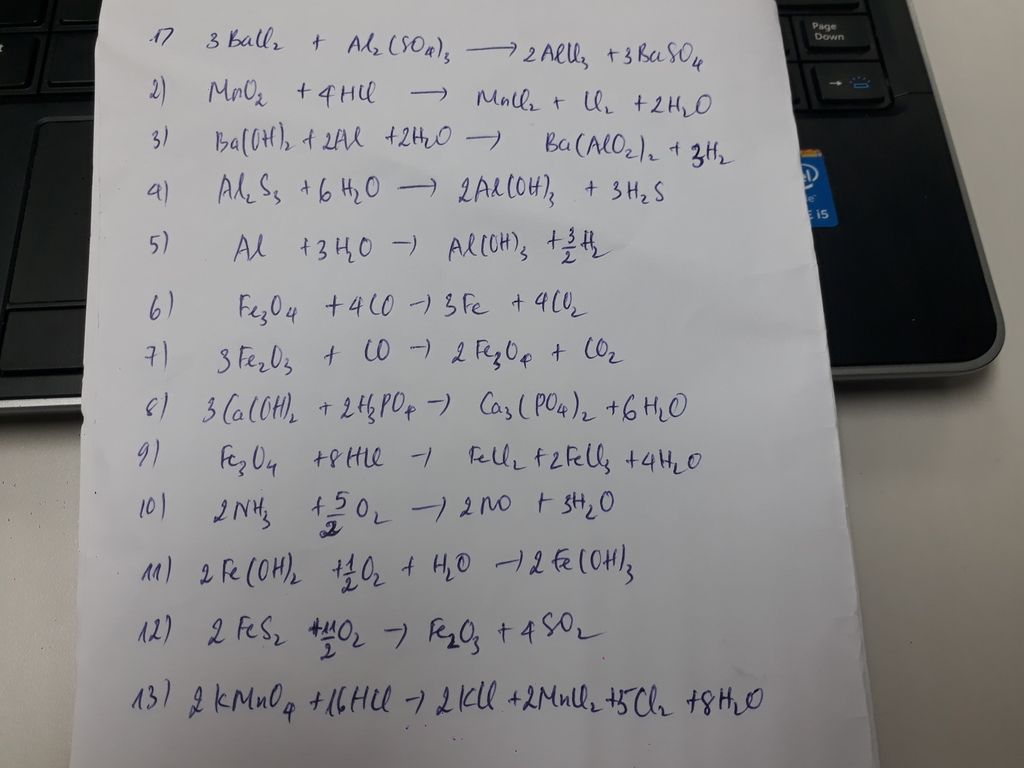 1) 3 BaCl₂ + Al₂(SO₄)₃ ⟶ 2AlCl₃ + 3BaSO₄
2) MnO₂ + 4HCl ⟶ MnCl₂ + Cl₂ + 2H₂O
3) Ba(OH)₂ + 2Al + 2H₂O ⟶ Ba(AlO₂)₂ + 3H₂
4) Al₂S₃ + 6H₂O ⟶ 2Al(OH)₃ + 3H₂S
5) Al + 3H₂O → Al(OH)₃ + 3/2 H₂
6) Fe₃O₄ + 4CO → 3Fe + 4CO₂
7) 3Fe₂O₃ + CO → 2Fe₃O₄ + CO₂
8) 3Ca(OH)₂ + 2H₃PO₄ → Ca₃(PO₄)₂ + 6H₂O
9) Fe₃O₄ + 8HCl → FeCl₂ + 2FeCl₃ + 4H₂O
10) 2NH₃ + 5/2 O₂ → 2NO + 3H₂O
11) 2Fe(OH)₂ + 1/2 O₂ + H₂O → 2Fe(OH)₃
12) 2FeS₂ + 11/2 O₂ → Fe₂O₃ + 4SO₂
13) 2KMnO₄ + 16HCl → 2KCl + 2MnCl₂ + 5Cl₂ + 8H₂O
Page
Down
i5